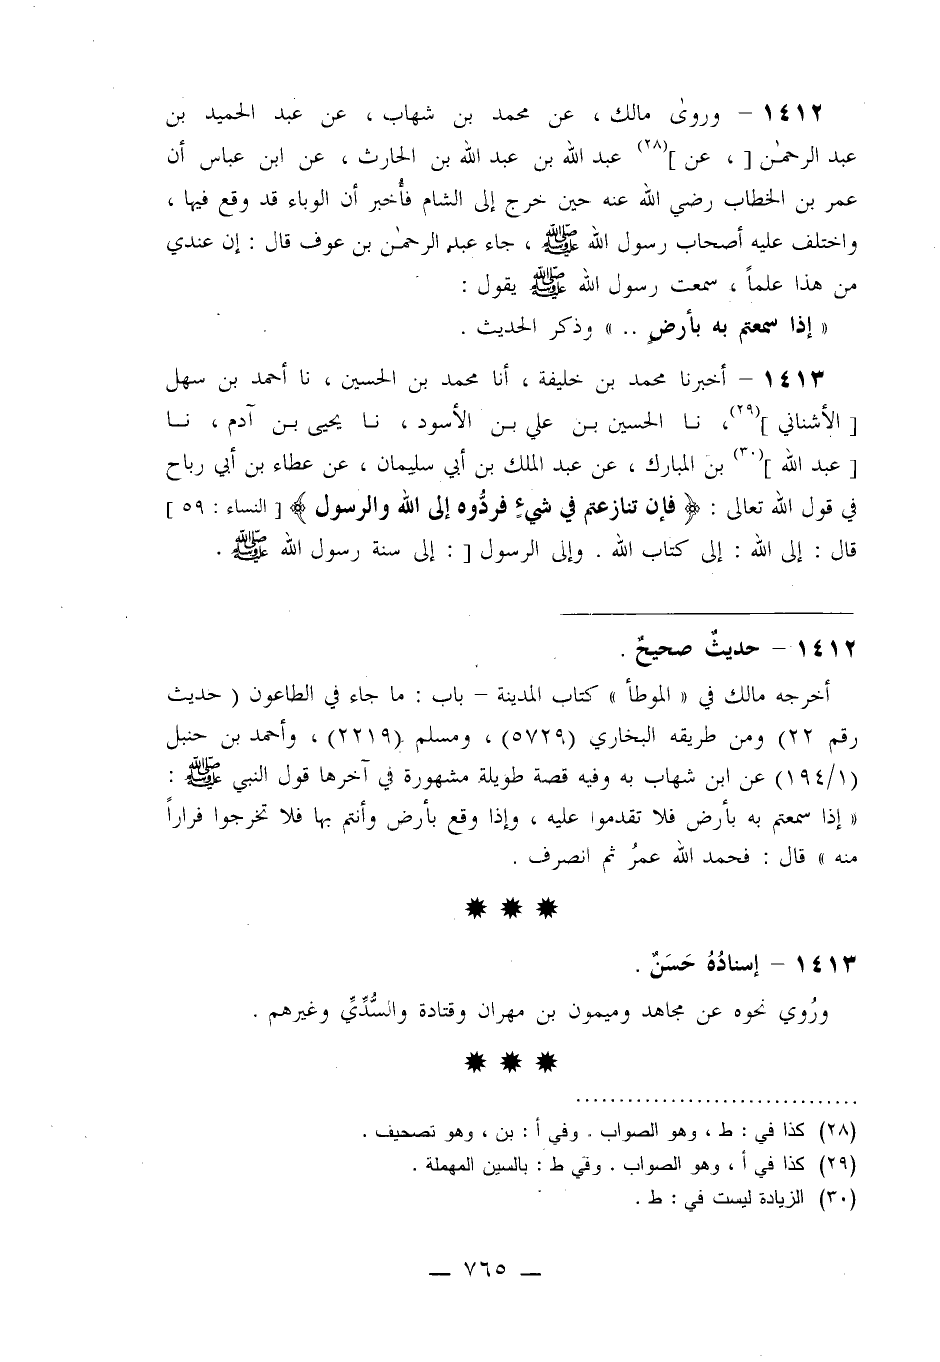 ١٤١٢ – وروىٰ مالك ، عن محمد بن شهاب ، عن عبد الحميد بن
عبد الرحمٰن [ ، عن ](٢٨) عبد الله بن عبد الله بن الحارث ، عن ابن عباس أن
عمر بن الخطاب رضي الله عنه حين خرج إلى الشام فأُخبر أن الوباء قد وقع فيها ،
واختلف عليه أصحاب رسول الله ﷺ ، جاء عبد الرحمٰن بن عوف قال : إن عندي
من هذا علماً ، سمعت رسول الله ﷺ يقول :
« إذا سمعتم به بأرضٍ .. » وذكر الحديث .
١٤١٣ – أخبرنا محمد بن خليفة ، أنا محمد بن الحسين ، نا أحمد بن سهل
[ الأشناني ](٢٩)، نا الحسين بن علي بن الأسود ، نا يحيى بن آدم ، نا
[ عبد الله ](٣٠) بن المبارك ، عن عبد الملك بن أبي سليمان ، عن عطاء بن أبي رباح
في قول الله تعالى : ﴿ فإن تنازعتم في شيءٍ فردُّوه إلى الله والرسول ﴾ [ النساء : ٥٩ ]
قال : إلى الله : إلى كتاب الله . وإلى الرسول [ : إلى سنة رسول الله ﷺ .
١٤١٢ – حديثٌ صحيحٌ .
أخرجه مالك في « الموطأ » كتاب المدينة – باب : ما جاء في الطاعون ( حديث
رقم ٢٢) ومن طريقه البخاري (٥٧٢٩) ، ومسلم (٢٢١٩) ، وأحمد بن حنبل
(١٩٤/١) عن ابن شهاب به وفيه قصة طويلة مشهورة في آخرها قول النبي ﷺ :
« إذا سمعتم به بأرض فلا تقدموا عليه ، وإذا وقع بأرض وأنتم بها فلا تخرجوا فراراً
منه » قال : فحمد الله عمرُ ثم انصرف .
١٤١٣ – إسنادُهُ حَسَنٌ .
ورُوي نحوه عن مجاهد وميمون بن مهران وقتادة والسُّدِّيِّ وغيرهم .
(٢٨) كذا في : ط ، وهو الصواب . وفي أ : بن ، وهو تصحيف .
(٢٩) كذا في أ ، وهو الصواب . وفي ط : بالسين المهملة .
(٣٠) الزيادة ليست في : ط .
— ٧٦٥ —